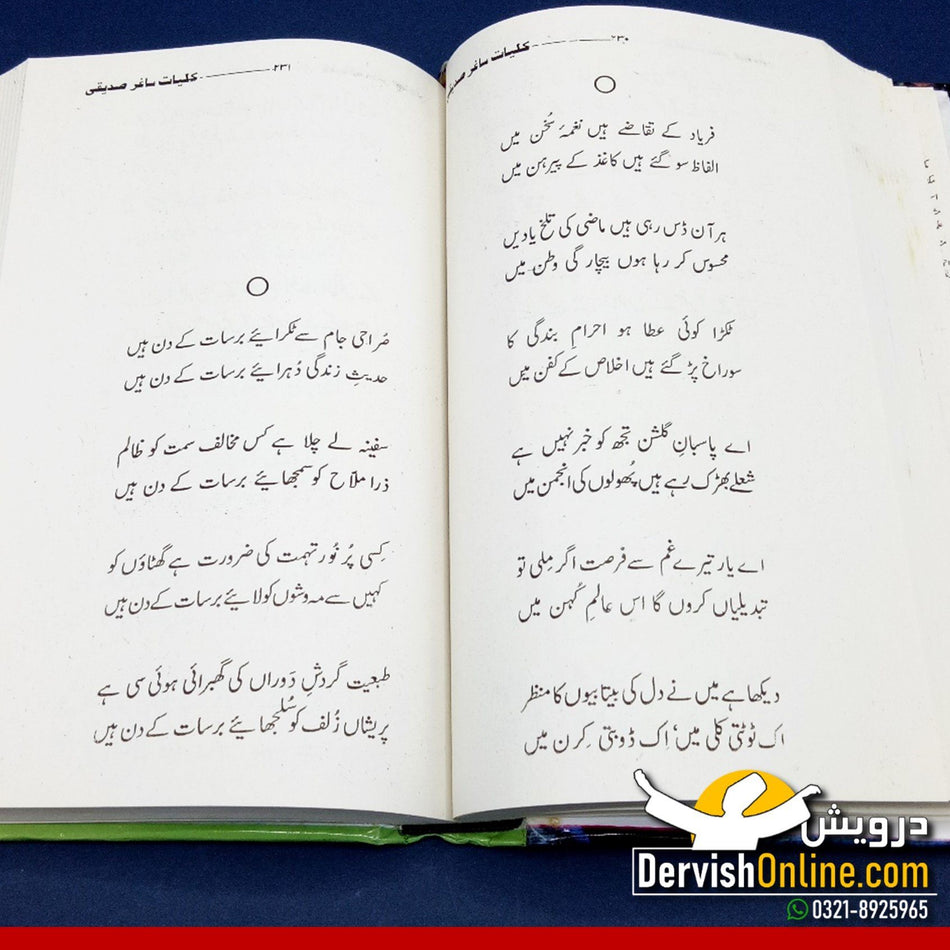 کلیات ساغر صدیقی ۲۳۰
فریاد کے تقاضے ہیں نغمۂ سُخن میں
الفاظ سو گئے ہیں کاغذ کے پیرہن میں
ہر آن ڈس رہی ہیں ماضی کی تلخ یادیں
محسوس کر رہا ہوں بیچارگی وطن میں
ٹکڑا کوئی عطا ہو احرامِ بندگی کا
سوراخ پڑ گئے ہیں اخلاص کے کفن میں
اے پاسبانِ گلشن تجھ کو خبر نہیں ہے
شعلے بھڑک رہے ہیں پُھولوں کی انجمن میں
اے یار تیرے غم سے فرصت اگر مِلی تو
تبدیلیاں کروں گا اس عالمِ کُہن میں
دیکھا ہے میں نے دل کی بیتابیوں کا منظر
اک ٹوٹتی کلی میں، اِک ڈوبتی کِرن میں
کلیات ساغر صدیقی ۲۳۱
صُراحی جام سے ٹکرائیے برسات کے دن ہیں
حدیثِ زندگی دُہرائیے برسات کے دن ہیں
سفینہ لے چلا ہے کس مخالف سمت کو ظالم
ذرا ملّاح کو سمجھائیے برسات کے دن ہیں
کِسی پُر نُور تہمت کی ضرورت ہے گھٹاؤں کو
کہیں سے مہ وشوں کو لائیے برسات کے دن ہیں
طبعیت گردشِ دَوراں کی گھبرائی ہوئی سی ہے
پریشاں زُلف کو سُلجھائیے برسات کے دن ہیں
درویش
DervishOnline.com
0321-8925965